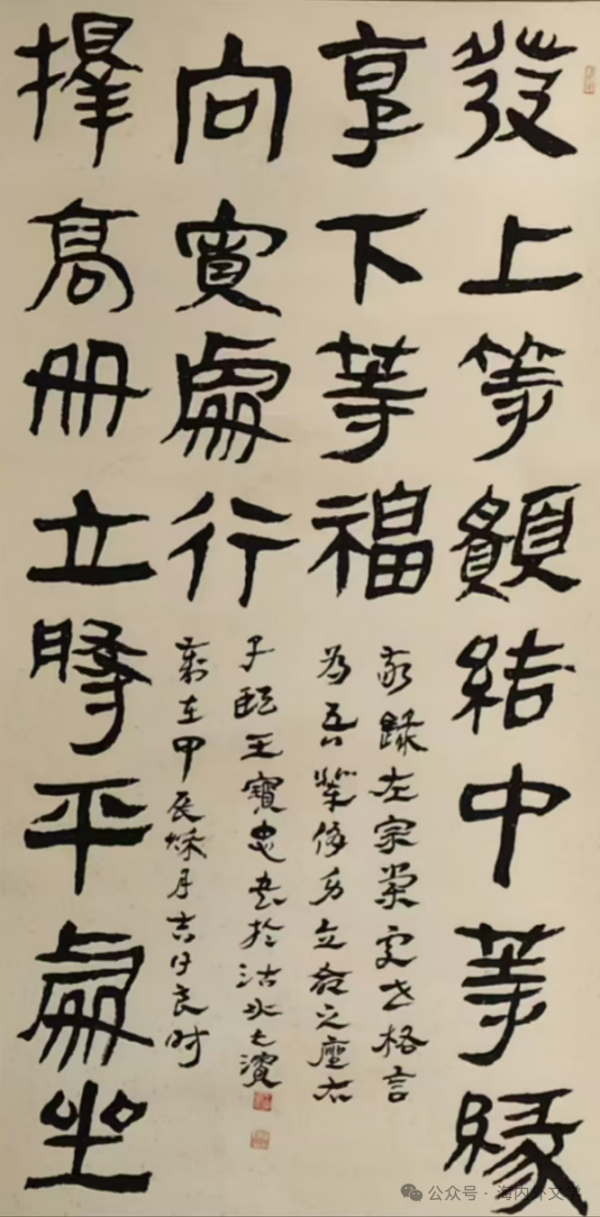 發上等願結中等緣
享下等福
擇高冊立尋平處坐
向寬處行
敬錄左宗棠處世格言
為吾輩修身立命之座右
王寶忠書於沽水之濱
歲在甲辰秋月吉日良时
公众号·海内外文学